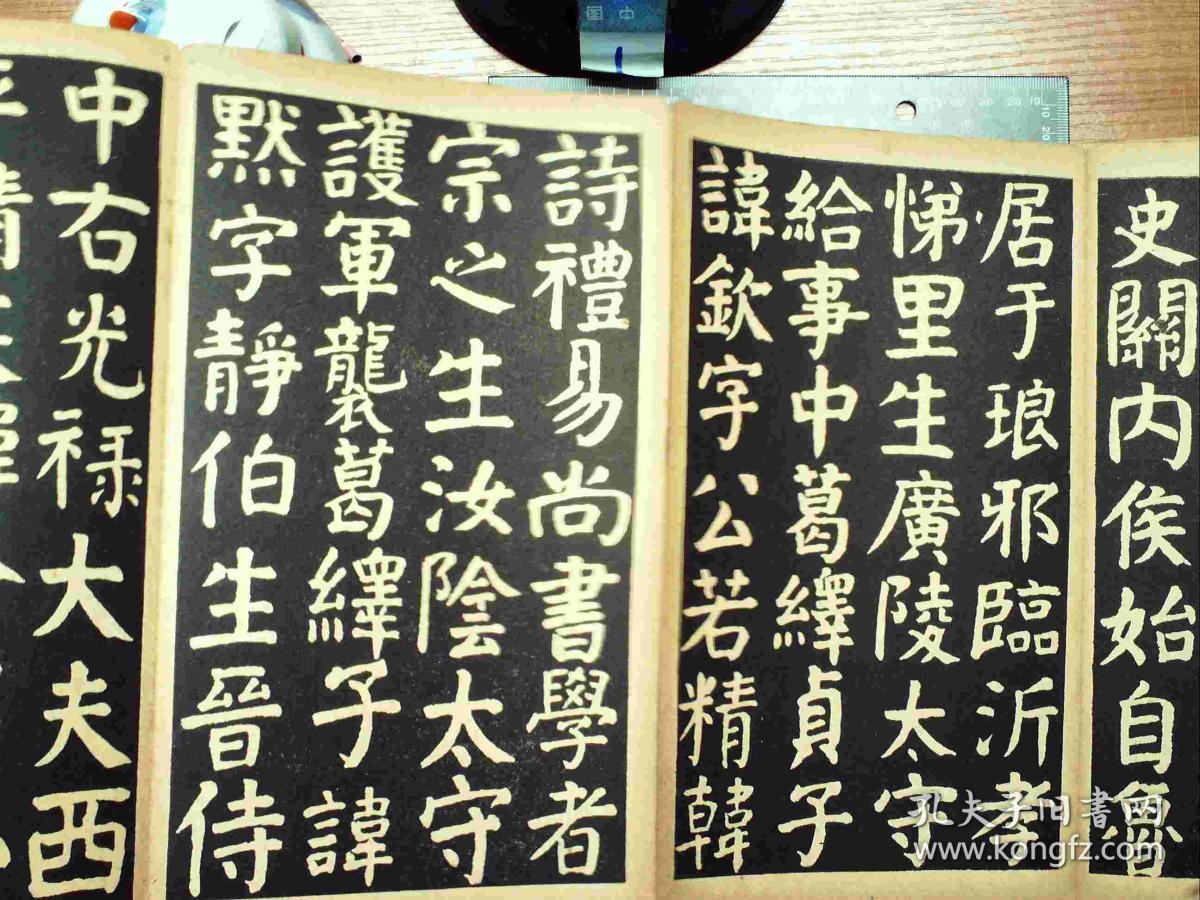 史關内侯始自魯
居于琅邪臨沂孝
悌里生廣陵太守
給事中葛繹貞子
諱欽字公若精韓
詩禮易尚書學者
宗之生汝陰太守
護軍襲葛繹子諱
默字靜伯生晉侍
中右光禄大夫西
孔夫子旧书网
www.kongfz.com